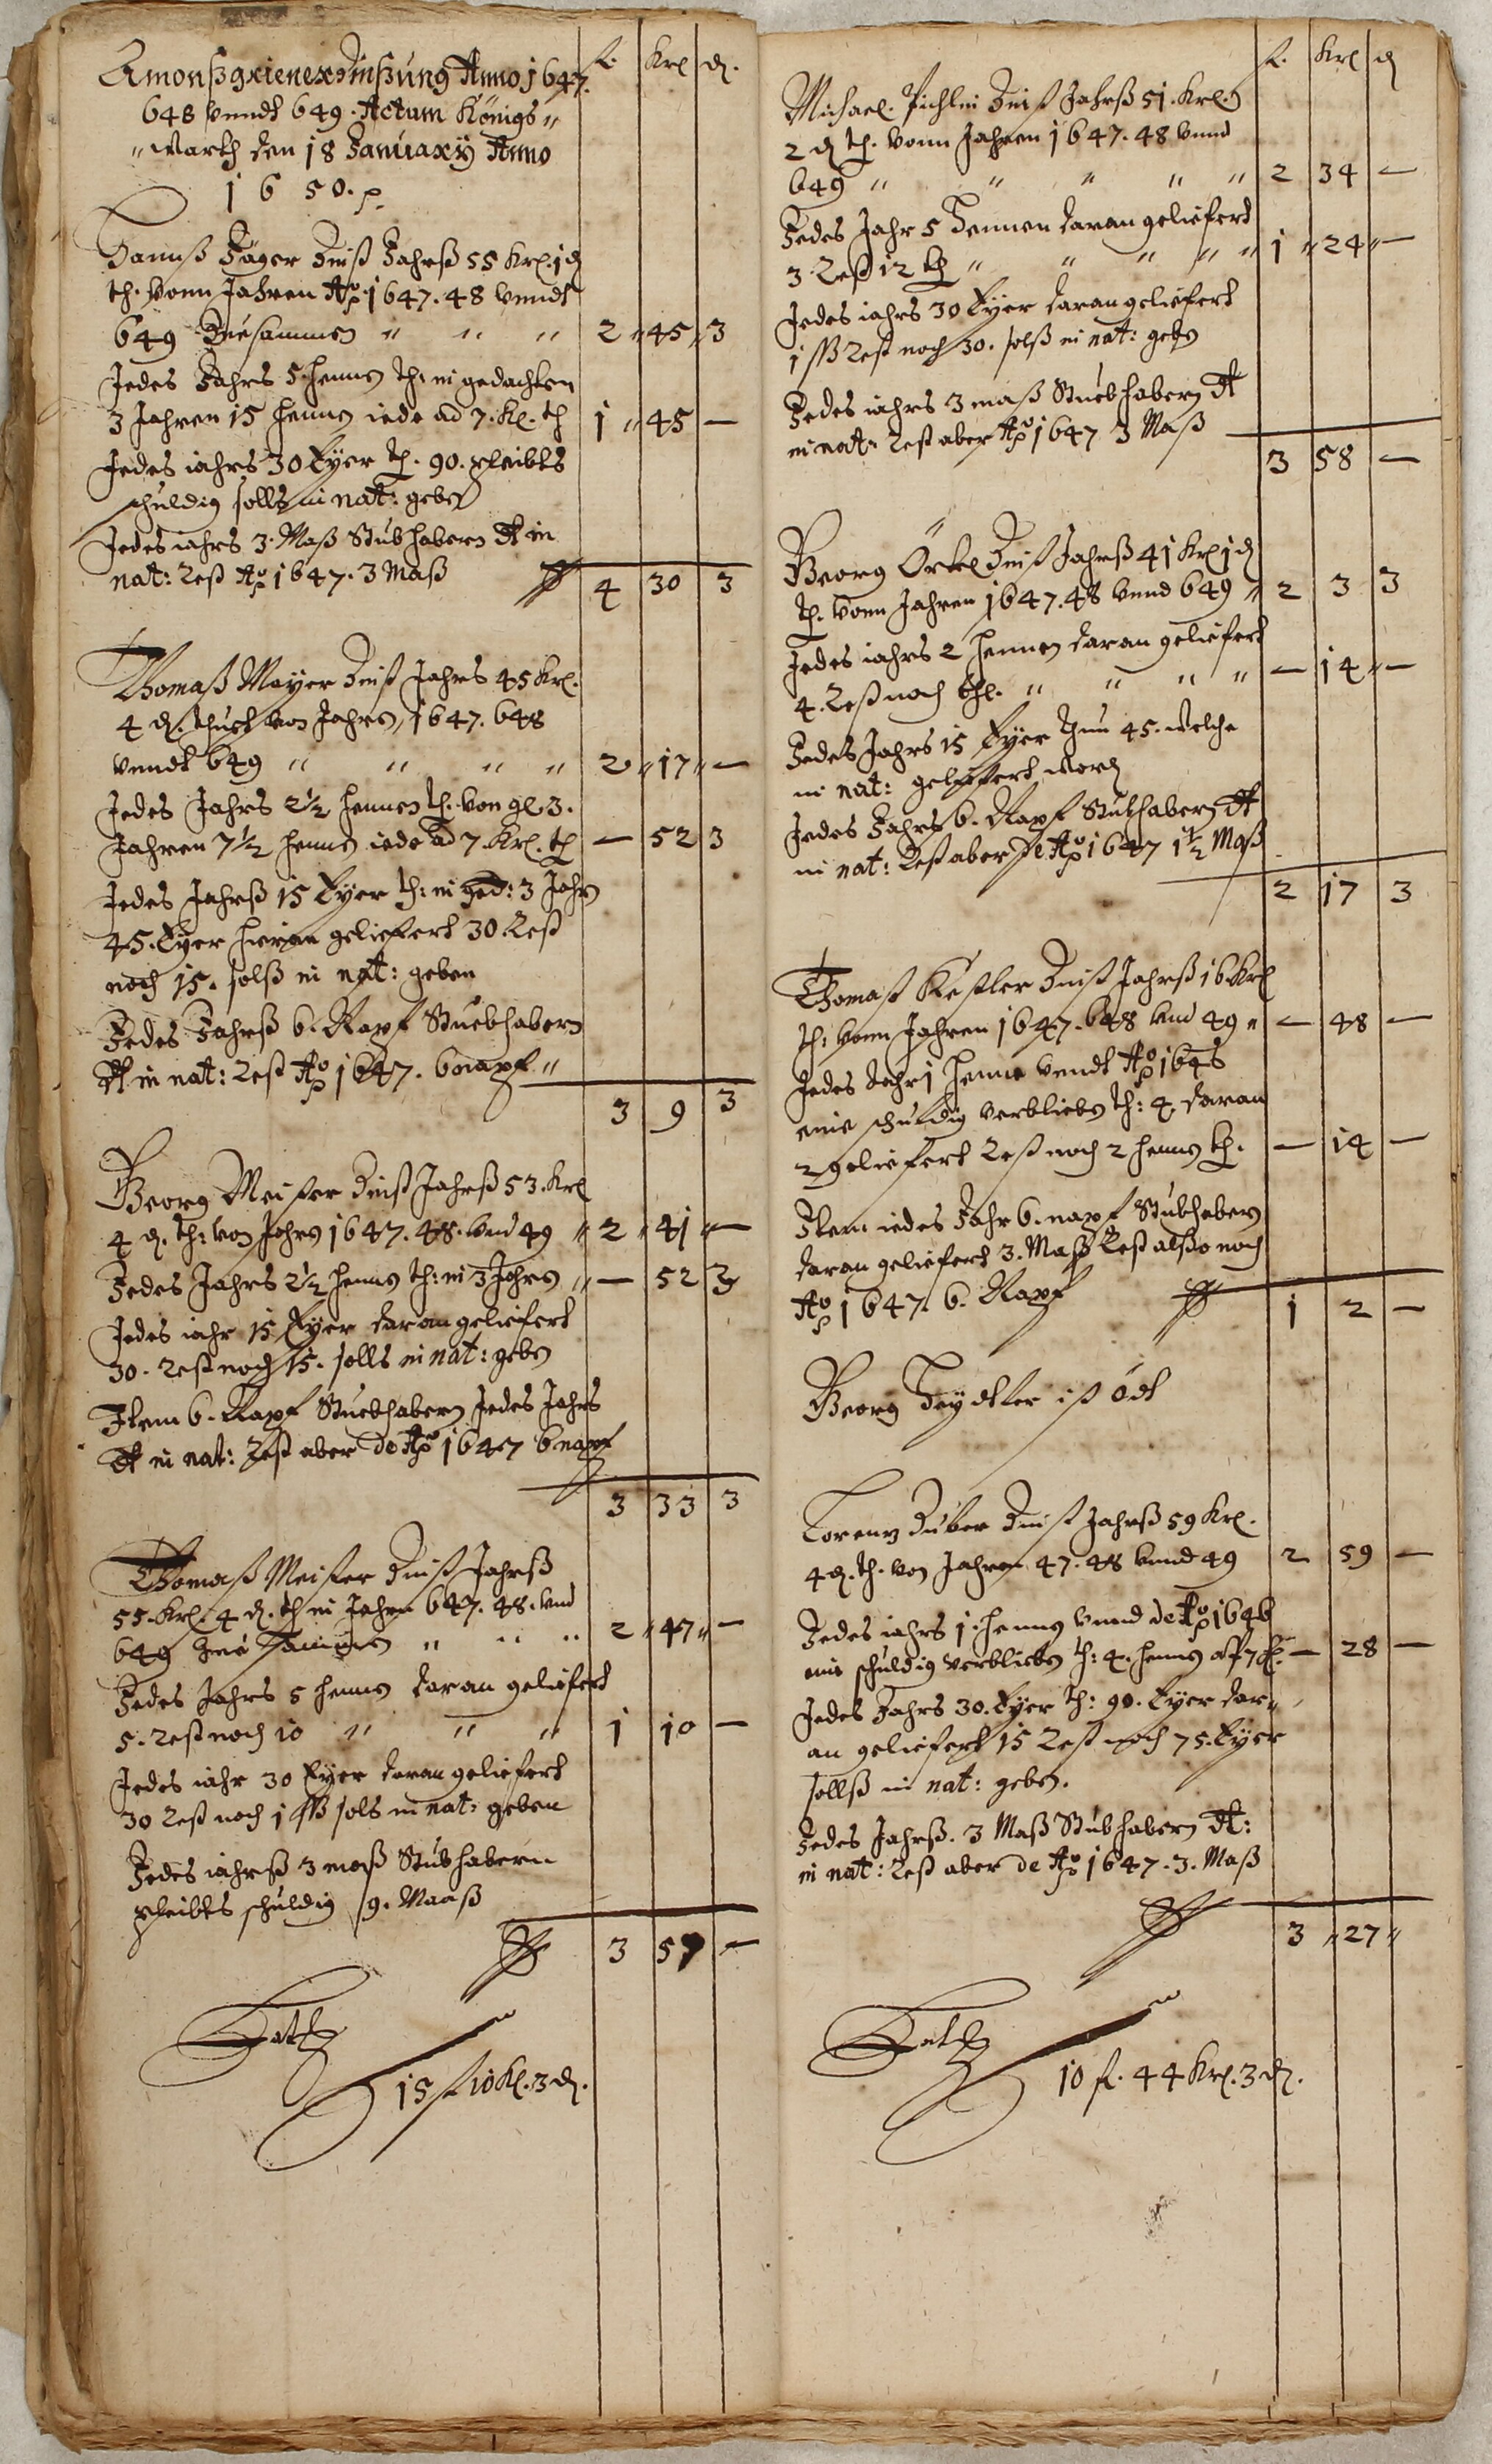 Amonßgriener Dinßung Anno 1647. f. Krl d.
648 vnndt 649. Actum Königs„
„wartt den 18 January Anno
1650. p.
Hannß Jäger Dinß Jahrß 55 Krl. 1 d
th. vonn Jahren Aō 1647. 48 vnndt
649 Zuesammen „ „ „ 2 „ 45 „ 3
Jedes Jahrs 5. hennen th. in gedachten
3 Jahren 15 hennen iede ad 7. Kl. th 1 „ 45 —
Jedes iahrs 30 Eÿer th. 90. pleibts
schuldig solls in nat: geben
Jedes iahrs 3. Maß Stubhabern dt in
nat: Rest Aō 1647. 3 Maß 4 30 3
Thomaß Mayer Dinß Jahrs 45 Krl.
4 d. thuet von Jahren 1647. 648
vnndt 649 „ „ „ „ 2 „ 17 „ —
Jedes Jahrs 2½ hennen th. von gl. 3.
Jahren 7½ hennen iede ad 7. Krl. th — 52 3
Jedes Jahrß 15 Eÿer th: in ged: 3 Jahrn
45. Eÿer hieran geliefert 30. Rest
noch 15. solß in nat: geben
Jedes Jahrß 6. Napf Stuebhabern
dt in nat: Rest Aō 1647. 6 napf „
3 9 3
Georg Meister Dinß Jahrß 53. Krl
4 d. th: von Jahren 1647. 48. vnd 49 „ 2 „ 41 „ —
Jedes Jahrs 2½ hennen th: in 3 Jahren „ — 52 3
Jedes iahr 15 Eÿer daran geliefert
30. Rest noch 15. solls in nat: geben
Item 6. Napf Stuebhabern Jedes Jahrs
dt in nat: Rest aber de Aō 1647 6 napf
3 33 3
Thomaß Meister Dinß Jahrß
55. Krl. 4 d. th in Jahren 647. 48. vnd
649 Zue samen „ „ „ 2 „ 47 „ —
Jedes Jahrs 5 hennen daran geliefert
5. Rest noch 10 „ „ „ 1 10 —
Jedes iahr 30 Eÿer daran geliefert
30 Rest noch 1 ß sols in nat: geben
Jedes iahrß 3 maß Stubhabern
pleibts schuldig 9. Maaß
3 57 —
Lath
15 f 10 Kl. 3 d.
f. Krl d
Michael Pichlni Dinß Jahrß 51. Krl.
2 d th. vonn Jahren 1647. 48 vnnd
649 „ „ „ „ „ 2 34 —
Jedes Jahr 5 Hennen daran geliefert
3. Rest 12 th „ „ „ „ „ 1 „ 24 „ —
Jedes iahrs 30 Eÿer daran geliefert
1 ß Rest noch 30. solß in nat: geben
Jedes iahrs 3 maß Stuebhabern dt
in nat: Rest aber Aō 1647 3 Maß
3 58 —
Georg Örtel Dinß Jahrß 41 Krl 1 d
th. vonn Jahren 1647. 48 vnnd 649 „ 2 3 3
Jedes iahrs 2 hennen daran geliefert
4. Rest noch thl. „ „ „ „ — 14 „ —
Jedes Jahrs 15 Eÿer thun 45. welche
in nat: geliefert worden
Jedes Jahrß 6. Napf Stubhabern dt
in nat: Rest aber de Aō 1647 1½ Maß
2 17 3
Thomaß Kestler Dinß Jahrß 16 Krl
th: vonn Jahren 1647. 648 vnd 49 „ — 48 —
Jedes Jahr 1 henne vnndt Aō 1646
eine schuldig verblieben th: 4. daran
2 geliefert Rest noch 2 hennen th. — 14 —
Item iedes Jahr 6. napf Stubhabern
daran geliefert 3. Maß Rest alßo noch
Aō 1647. 6. Napf 1 2 —
Georg ist ödt
Lorenz Huber Dinst Jahrß 59 Krl.
4 d. th. von Jahren 47. 48 vnnd 49 2 59 —
Jedes iahrs 1. hennen vnnd de Aō 1646
eine schuldig verblieben th: 4. hennen 7 Kl. — 28 —
Jedes Jahrs 30. Eÿer th: 90. Eÿer dar„
an geliefert 15 Rest noch 75. Eÿer
sollß in nat: geben.
Jedes Jahrß. 3 Maß Stubhabern dt:
in nat: Rest aber de Aō 1647. 3. Maß
3 „ 27 „
Lath
10 f. 44 Krl. 3 d.